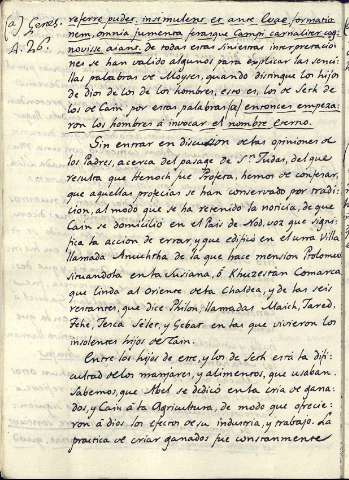 (a) Genes.
4. 26.
referre pudet, insimulent et ante Evae formatio
nem, omnia jumenta ferasque Campi carnaliter cog
novisse aiant. de todas estas siniestras interpretacio
nes se han valido algunos para explicar las senci
llas palabras de Moyses, quando distingue los hijos
de dios de los de los hombres, esto es, los de Seth de
los de Cain por estas palabras (a) entonces empeza
ron los hombres á invocar el nombre eterno.
Sin entrar en discusion de las opiniones de
los Padres, acerca del pasage de Sn. Judas, del que
resulta que Henoch fue Profeta, hemos de confesar,
que aquellas profecias se han conservado por tradi
cion, al modo que se ha retenido la noticia, de que
Cain se domicilió en el Pais de Nod, voz que signi
fica la accion de errar, y que edificó en el una Villa
llamada Anuchtha de la que hace mension Ptolomeo
situandola en la Susiana, ó Khuzestan Comarca
que linda al Oriente de la Chaldea, y de las seis
restantes, que dice Philon llamadas Maich, Jared,
Tehe, Jesca Selet, y Gebat en las que vivieron los
insolentes hijos de Cain.
Entre los hijos de este, y los de Seth está la difi
cultad de los manjares, y alimentos, que usaban.
Sabemos, que Abel se dedicó en la cria de gana
dos, y Cain á la Agricultura, de modo que ofrecie
ron á dios los efectos de su industria, y trabajo. La
practica de criar ganados fue constantemente